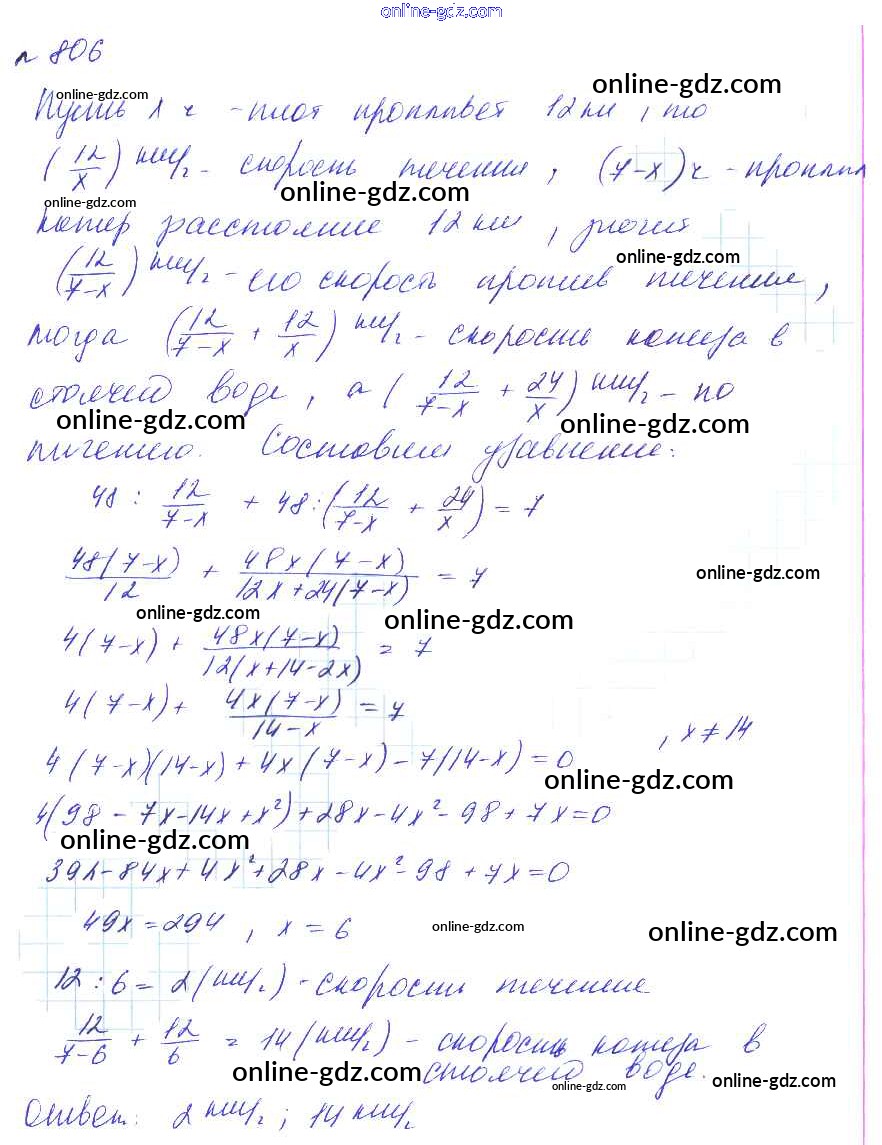 online-gdz.com
№ 806
online-gdz.com
online-gdz.com
Пусть x ч - плот проплывёт 12 км, то
(12/x) км/ч - скорость течения, (7-x) ч - проплыл
online-gdz.com
online-gdz.com
катер расстояние 12 км, значит
online-gdz.com
(12/(7-x)) км/ч - его скорость против течения,
тогда (12/(7-x) + 12/x) км/ч - скорость катера в
стоячей воде, а (12/(7-x) + 24/x) км/ч - по
online-gdz.com
online-gdz.com
течению. Составим уравнение:
48 : 12/(7-x) + 48 : (12/(7-x) + 24/x) = 7
48(7-x)/12 + 48x(7-x)/(12x+24(7-x)) = 7
online-gdz.com
online-gdz.com
online-gdz.com
4(7-x) + 48x(7-x)/(12(x+14-2x)) = 7
4(7-x) + 4x(7-x)/(14-x) = 7
4(7-x)(14-x) + 4x(7-x) - 7(14-x) = 0 , x ≠ 14
online-gdz.com
4(98 - 7x - 14x + x²) + 28x - 4x² - 98 + 7x = 0
online-gdz.com
392 - 84x + 4x² + 28x - 4x² - 98 + 7x = 0
49x = 294 , x = 6
online-gdz.com
online-gdz.com
12 : 6 = 2 (км/ч) - скорость течения
12/(7-6) + 12/6 = 14 (км/ч) - скорость катера в
online-gdz.com
стоячей воде.
online-gdz.com
online-gdz.com
Ответ: 2 км/ч; 14 км/ч